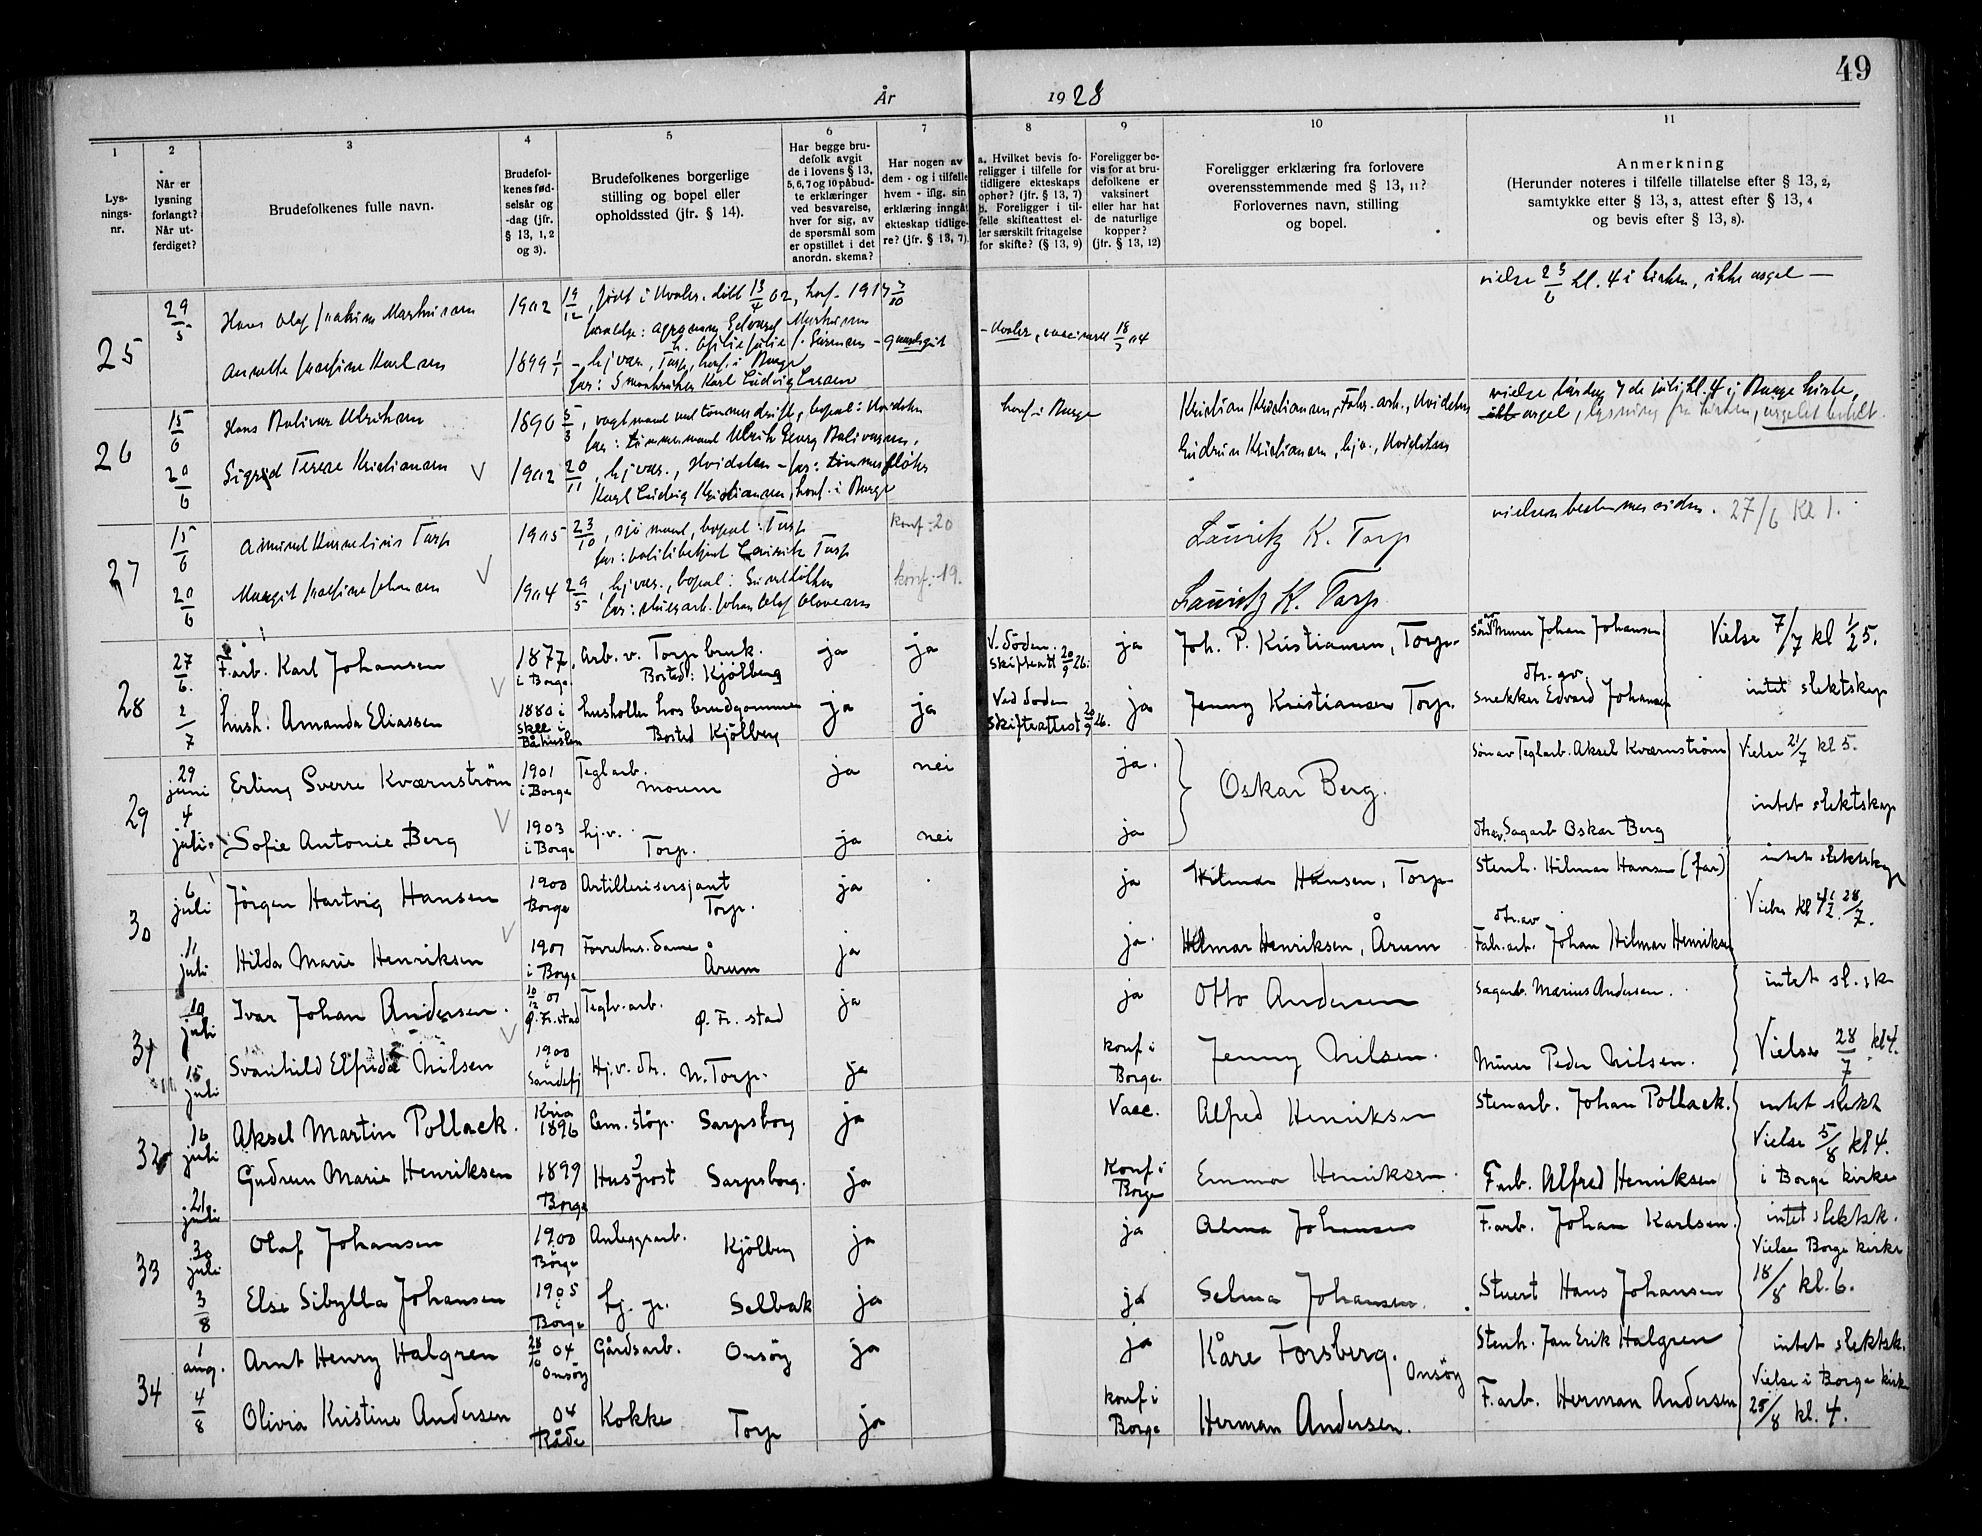 49
År 1928
1 2 3 4 5 6 7 8 9 10 11
Lys-
nings-
nr.
Når er
lysning
forlangt?
Når ut-
ferdiget?
Brudefolkenes fulle navn.
Brudefol-
kenes fød-
selsår og
-dag (jfr.
§ 13, 1, 2
og 3).
Brudefolkenes borgerlige
stilling og bopel eller
opholdssted (jfr. § 14).
Har begge bru-
defolk avgit
de i lovens § 13,
5, 6, 7 og 10 påbud-
te erklæringer
ved besvarelse,
hver for sig, av
de spørsmål som
er opstillet i det
anordn. skema?
Har nogen av
dem - og i tilfelle
hvem - iflg. sin
erklæring inngåt
ekteskap tidlige-
re? (jfr. § 13, 7).
a. Hvilket bevis fo-
religger i tilfelle for
tidligere ekteskaps
opher? (jfr. § 13, 7)
b. Foreligger i til-
felle skifteattest el-
ler særskilt fritagelse
for skifte? (§ 13, 9)
Foreligger be-
vis for at bru-
defolkene er
vaksinert
eller har hat
de naturlige
kopper?
(jfr. § 13, 12)
Foreligger erklæring fra forlovere
overensstemmende med § 13, 11?
Forlovernes navn, stilling
og bopel.
Anmerkning
(Herunder noteres i tilfelle tillatelse efter § 13, 2,
samtykke efter § 13, 3, attest efter § 13, 4
og bevis efter § 13, 8).
25
29/5
Hans Olaf Joakim Martinsen
1902 19/12, født i Hvaler, døbt 13/4 02, konf. 1917 7/10
vielse 23/6 kl. 4 i kirken, ikke orgel —
Annette Josefine Karlsen
1899 1/1 - hj.vær., Torp, konf. i Borge
far: Småbruker Karl Ludvig Larsen
- Hvaler, vaccinert 18/7 04
26
15/6
Hans Bolivar Ulriksen
1890 5/3, vagtmand ved tømmerdrift, bopæl: Hvidsten
far: tømmermand Ulrik Georg Bolivarsen.
konf. i Borge
Kristian Kristiansen, Fabr. arb., Hvidsten
vielse lørdag 7de juli kl. 4 i Borge kirke,
orgel, lysning fra kirken, orgelet betalt.
20/6
Sigrid Terese Kristiansen
1902 20/11, hj.vær., Hvidsten - far: tømmerfløter
Karl Ludvig Kristiansen, konf. i Borge
Gudrun Kristiansen, hjv., Hvidsten
27
15/6
Amund Kornelius Torp
1905 23/10, sjømand, bopæl: Torp
far: politibetjent Lauritz Torp
konf:-20
Lauritz K. Torp
vielsen bestemmes siden. 27/6 Kl 1.
20/6
Margit Josefine Johansen
1904 29/5, hj.vær., bopæl:
far: sliperiarb. Johan Olaf Olavesen
konf:-19.
Lauritz K. Torp
28
27/6.
F.arb. Karl Johansen
1877 i Borge
Arb. v. Torp bruk.
Bosted: Kjölberg
ja
ja
V. döden.
Skifteatt 20/9 26.
ja
Joh. P. Kristiansen, Torp.
Sön av Murer Johan Johansen
Vielse 7/7 kl 1/2 5.
2/7
hush. Amanda Eliassen
1880 i Skee i Båhuslen
husholder hos brudgommen
Bosted Kjölberg
ja
ja
Ved döden
Skifteattest 20/9 26.
ja
Jenny Kristiansen Torp.
dtr. av
Snekker Edvard Johansen
intet slektskap
29
29 juni
Erling Sverre Kværnström
1901 i Borge
Teglarb.
Moum
ja
nei
ja.
Oskar Berg.
Sön av Teglarb. Aksel Kværnström
Vielse 21/7 kl 5.
4 juli
Sofie Antonie Berg
1903 i Borge
hj.v.
Torp.
ja
nei
ja
dtr. av Sagarb Oskar Berg
intet slektskap
30
6 juli
Jörgen Hartvig Hansen
1900 Borge
Artillerisersjant
Torp.
ja
ja
Hilmar Hansen, Torp
Stenh. Hilmar Hansen (far)
intet slektskap
11 juli
Hilda Marie Henriksen
1907 i Borge
Forretn. dame
Årum
ja
ja.
Hilmar Henriksen, Årum
dtr. av
Fabr. arb. Johan Hilmar Henriksen
Vielse kl 4 1/2 28/7.
31
10 juli
Ivar Johan Andersen.
10/12 07 Ø. Fr. stad
Teglv. arb.
Ø. Fr. stad
ja
ja
Otto Andersen
Sagarb. Marius Andersen.
intet sl. sk
15 juli
Svanhild Elfrida Nilsen
1900 i Sandefj
Hj.v. dtr. N. Torp.
ja
konf i Borge.
Jenny Nilsen.
Murer Peder Nilsen.
Vielse 28/7 kl 4.
32
16 juli
Aksel Martin Pollack.
Kria 1896
Cem. stöp. Sarpsborg
ja
Vacc.
Alfred Henriksen
Stenarb. Johan Pollack.
intet slekt
Vielse 5/8 kl 4.
21 juli
Gudrun Marie Henriksen
1899 Borge
Husjost Sarpsborg.
ja
Konf i Borge
Emma Henriksen.
F.arb. Alfred Henriksen
i Borge kirke
33
30 juli
Olaf Johansen
1900 Borge
Anleggsarb.
Kjölberg
ja
ja
Alma Johansen
F.arb. Johan Karlsen.
intet slektsk.
Vielse Borge kirke
3/8
Else Sibylla Johansen
1905 i Borge
hj. p. Selbak
ja
ja
Selma Johansen.
Stuert Hans Johansen
18/8 kl. 6.
34
1 aug.
Arnt Henry Halgren
28/10 04 Onsöy
Gårdsarb. Onsöy
ja
ja
Kåre Forsberg. Onsöy
Stenh. Jan Erik Halgren
intet slektsk.
4/8
Olivia Kristine Andersen
04 Råde
Kokke Torp
ja
konf i Borge
Herman Andersen.
F.arb. Herman Andersen
Vielse i Borge kirk
25/8 kl. 4.